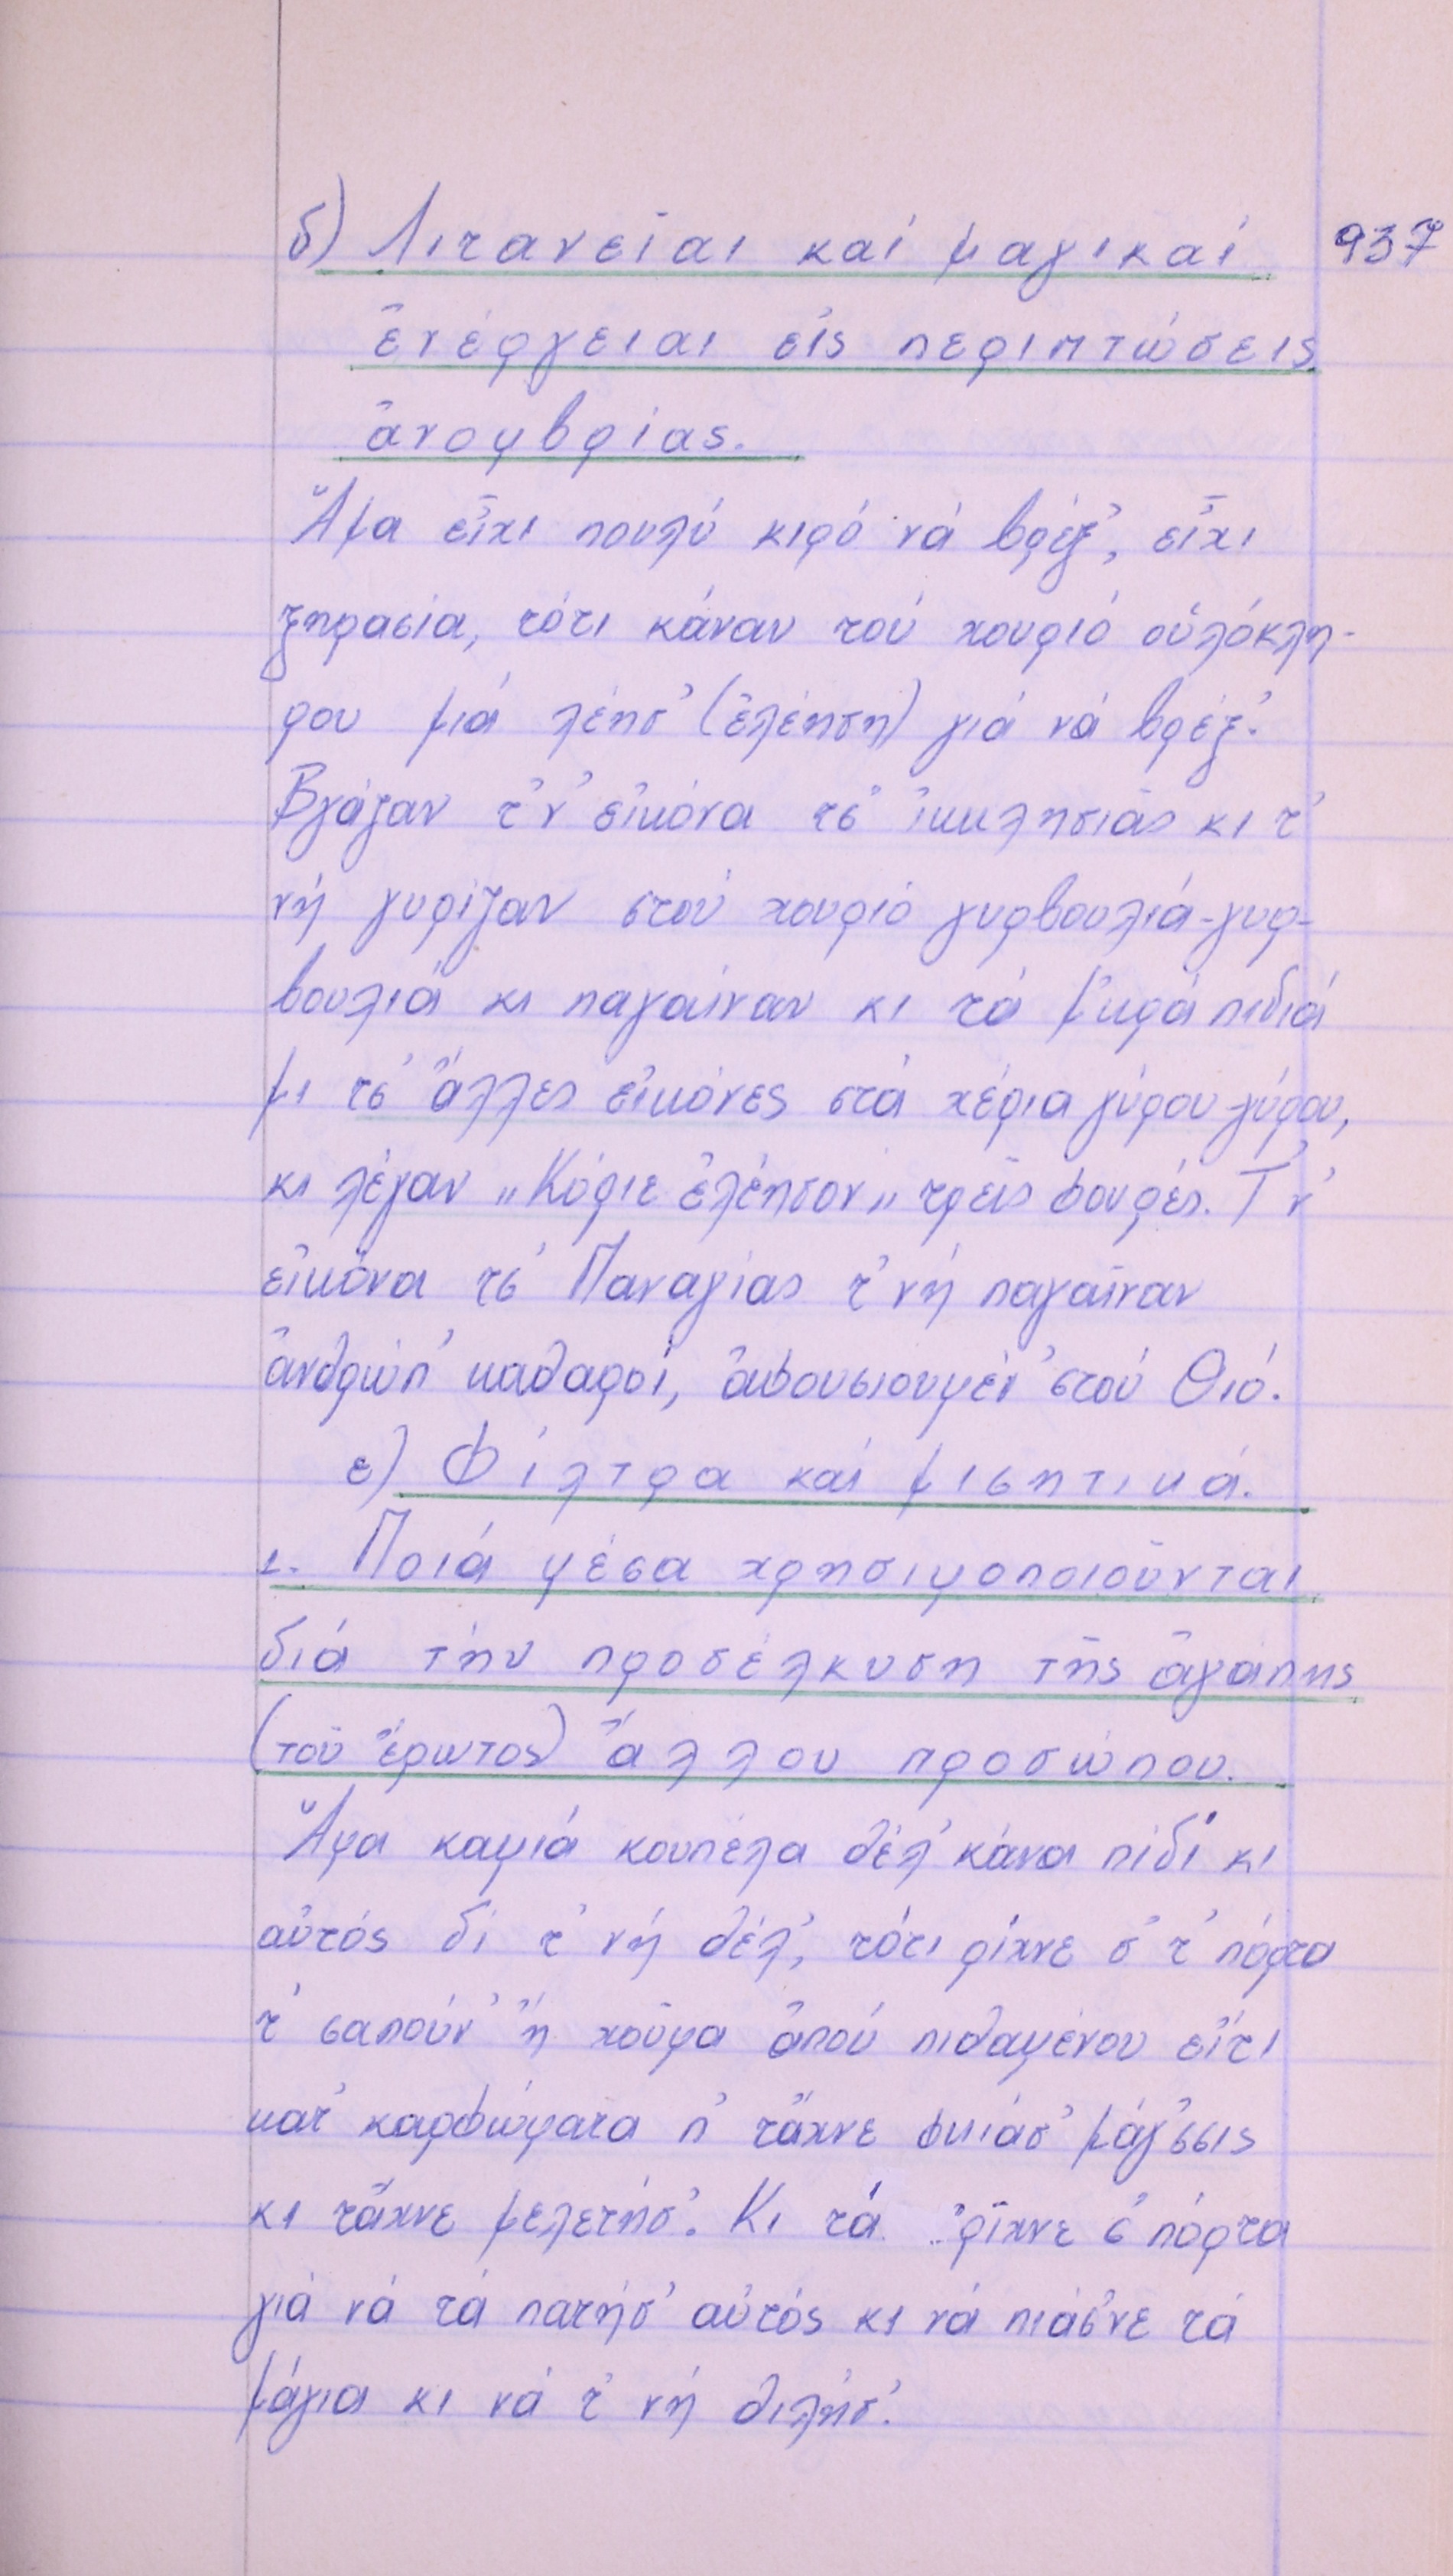 937
δ) Λιτανεῖαι καί μαγικαί
ἐνέργειαι εἰς περιπτώσεις
ἀνομβρίας.
Ἅμα εἶχι πουλύ κιρό νά βρέξ', εἶχι
ξηρασία, τότι κάναν τού χουριό οὑλόκλη-
ρου μιά λέησ' (ἐλέηση) γιά νά βρέξ'.
Βγάζαν τ' ν' εἰκόνα τσ' ἰκκλησιᾶς κι τ'
νή γυρίζαν στού χουριό γυρβουλιά-γυρ-
βουλιά κι παγαίναν κι τά μ'κρά πιδιά
μι τσ' ἄλλες εἰκόνες στά χέρια γύρου-γύρου,
κι λέγαν „Κύριε ἐλέησον„ τρεῖς φουρές. Τ' ν'
εἰκόνα τσ' Παναγίας τ' νή παγαῖναν
ἀνθρώπ' καθαροί, ἀφουσιουμέν' στού Θιό.
ε) Φίλτρα καί μισητικά.
1. Ποιά μέσα χρησιμοποιοῦνται
διά τήν προσέλκυση τῆς ἀγάπης
(τοῦ ἔρωτος) ἄλλου προσώπου.
Ἅμα καμιά κουπέλα θέλ' κάνα πιδί κι
αὐτός δί τ' νή θέλ', τότι ρίχνε σ' τ' πόρτα
τ' σαπούν' ἤ χοῦμα ἀπού πιθαμένου εἴτι
κατ' καρφώματα π' τἄχνε φκιάσ' μάγ'σσις
κι τἄχνε μελετήσ'. Κι τά ρίχνε σ' πόρτα
γιά νά τά πατήσ' αὐτός κι νά πιάσ'νε τά
μάγια κι νά τ' νή θιλήσ'.